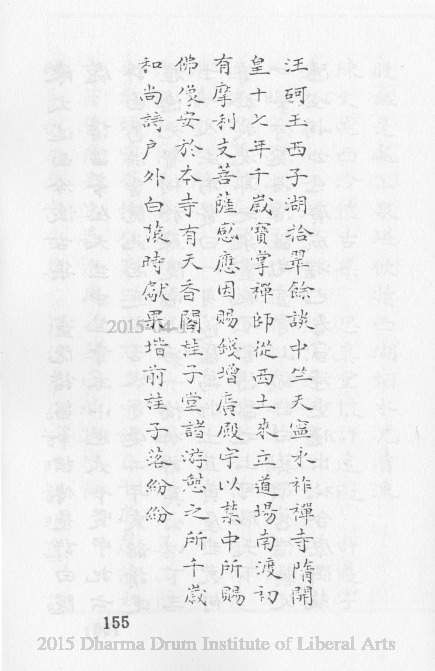 汪砢玉西子湖拾翠餘談中竺天寧永祚禪寺隋開
皇十七年千歲寶掌禪師從西土來立道場南渡初
有摩利支菩薩感應因賜錢增廣殿宇以禁中所賜
佛像安於本寺有天香閣桂子堂諸游憩之所千歲
和尚詩戶外白猿時獻果堦前桂子落紛紛
2015-04-1
155
2015 Dharma Drum Institute of Liberal Arts